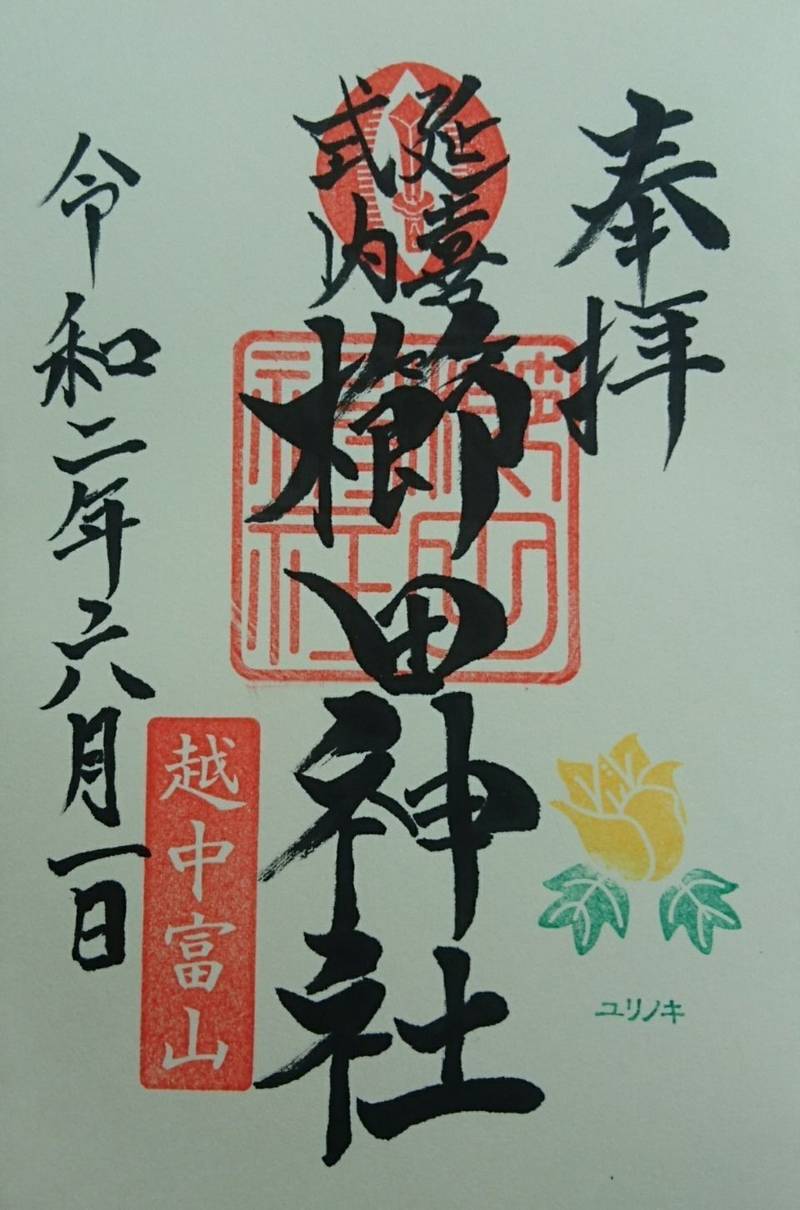 奉拝
延喜
式内
櫛田神社
令和二年六月一日
越中富山
ユリノキ